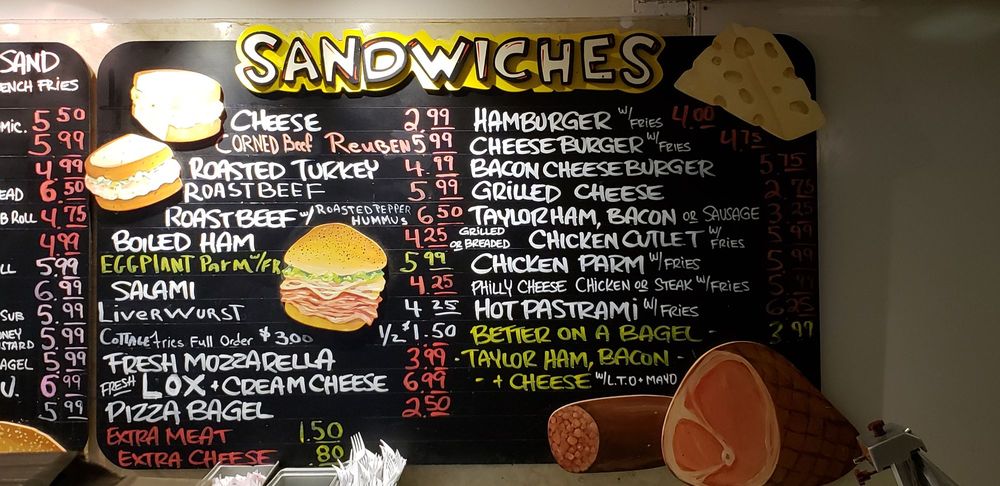 SAND
ENCH FRIES
MIC. 5.50
5.99
4.99
EAD 6.50
B ROLL 4.75
4.99
LL 5.99
6.99
SUB 5.99
NEY STARD 5.99
AGEL 5.99
U. 6.99
5.99
SANDWICHES
CHEESE 2.99
CORNED Beef REUBEN 5.99
ROASTED TURKEY 4.99
ROAST BEEF 5.99
ROAST BEEF W/ ROASTED PEPPER HUMMUS 6.50
BOILED HAM 4.25
EGGPLANT Parm W/FR 5.99
SALAMI 4.25
LIVERWURST 4.25
COTTAGE Fries Full Order $3.00 1/2 $1.50
FRESH MOZZARELLA 3.99
FRESH LOX + CREAM CHEESE 6.99
PIZZA BAGEL 2.50
EXTRA MEAT 1.50
EXTRA CHEESE .80
HAMBURGER W/ FRIES 4.00
CHEESEBURGER W/ FRIES 4.75
BACON CHEESEBURGER 5.75
GRILLED CHEESE 2.75
TAYLOR HAM, BACON OR SAUSAGE 3.25
GRILLED OR BREADED CHICKEN CUTLET W/ FRIES
CHICKEN PARM W/ FRIES
PHILLY CHEESE CHICKEN OR STEAK W/ FRIES
HOT PASTRAMI W/ FRIES 6.25
BETTER ON A BAGEL - 3.99
- TAYLOR HAM, BACON -
- + CHEESE W/L.T.O + MAYO